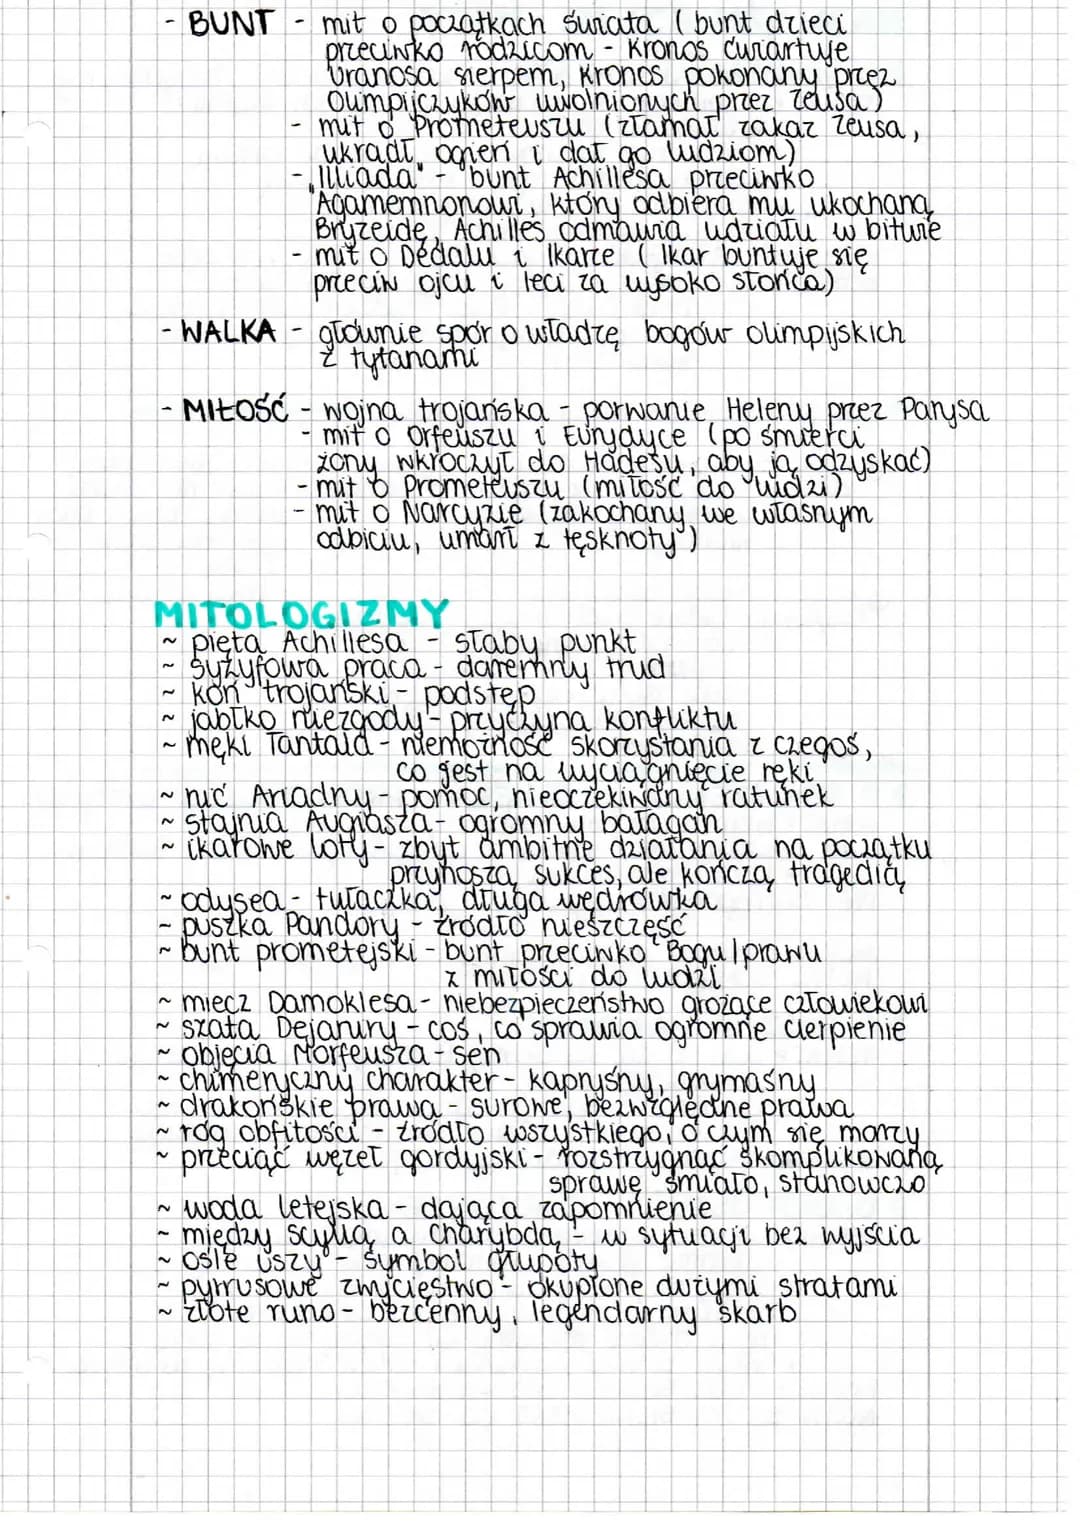 - BUNT - mit o początkach świata (bunt dzieci
przeciwko rodzicom - Kronos ćwiartuje
Uranosa sierpem, Kronos pokonany przez
Olimpijczyków uwolnionych przez Zeusa)
- mit o Prometeuszu (złamał zakaz Zeusa,
ukradł ogień i dał go ludziom)
- „Illiada" - bunt Achillesa przeciwko
Agamemnonowi, który odbiera mu ukochaną
Bryzeidę, Achilles odmawia udziału w bitwie
- mit o Dedalu i Ikarze (Ikar buntuje się
przeciw ojcu i leci za wysoko słońca)
- WALKA - głównie spór o władzę bogów olimpijskich
z tytanami
- MIŁOŚĆ - wojna trojańska - porwanie Heleny przez Parysa
- mit o Orfeuszu i Eurydyce (po śmierci
żony wkroczył do Hadesu, aby ją odzyskać)
- mit o Prometeuszu (miłość do ludzi)
- mit o Narcyzie (zakochany we własnym
odbiciu, umarł z tęsknoty)
MITOLOGIZMY
~ pięta Achillesa - słaby punkt
~ syzyfowa praca - daremny trud
~ koń trojański - podstęp
~ jabłko niezgody - przyczyna konfliktu
~ męki Tantala - niemożność skorzystania z czegoś,
co jest na wyciągnięcie ręki
~ nić Ariadny - pomoc, nieoczekiwany ratunek
~ stajnia Augiasza - ogromny bałagan
~ ikarowe loty - zbyt ambitne działania na początku
przynoszą sukces, ale kończą tragedią
~ odysea - tułaczka, długa wędrówka
~ puszka Pandory - źródło nieszczęść
~ bunt prometejski - bunt przeciwko Bogu/prawu
z miłości do ludzi
~ miecz Damoklesa - niebezpieczeństwo grożące człowiekowi
~ szata Dejaniry - coś, co sprawia ogromne cierpienie
~ objęcia Morfeusza - sen
~ chimeryczny charakter - kapryśny, grymaśny
~ drakońskie prawa - surowe, bezwzględne prawa
~ róg obfitości - źródło wszystkiego, o czym się marzy
~ przeciąć węzeł gordyjski - rozstrzygnąć skomplikowaną
sprawę śmiało, stanowczo
~ woda letejska - dająca zapomnienie
~ między scyllą a charybdą - w sytuacji bez wyjścia
~ ośle uszy - symbol głupoty
~ pyrrusowe zwycięstwo - okupione dużymi stratami
~ złote runo - bezcenny, legendarny skarb